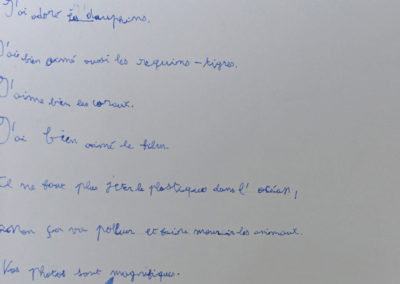 J'ai adoré les dauphins.
J'ai bien aimé aussi les requins-tigres.
J'aime bien les coraux.
J'ai bien aimé le film.
Il ne faut plus jeter le plastique dans l'océan,
sinon ça va polluer et faire mourir les animaux.
Vos photos sont magnifiques.